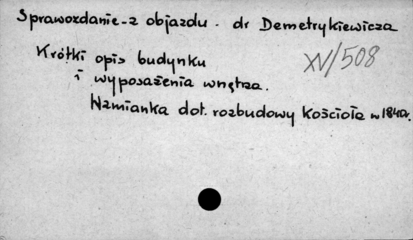 Sprawozdanie-z objazdu. dr Demetrykiewicza
Krótki opis budynku
XV/508
i wyposażenia wnętrza.
Wzmianka dot. rozbudowy kościoła w 1840r.